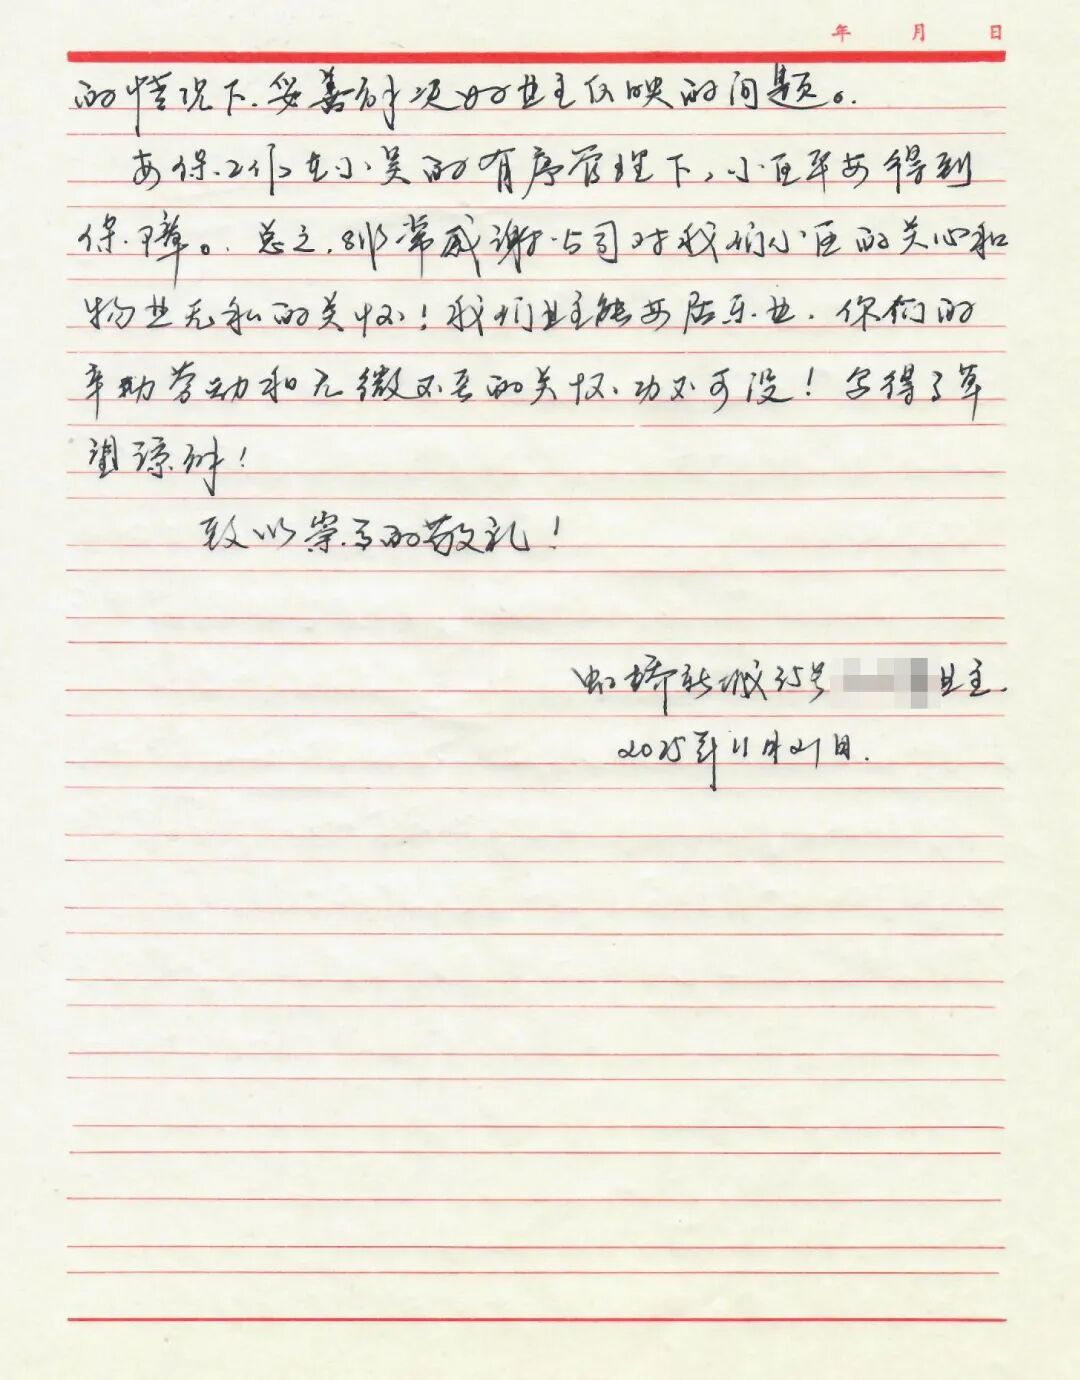 年 月 日
的情况下.妥善解决好业主反映的问题。
安保工作在小吴的有序管理下,小区平安得到
保障。总之.非常感谢公司对我们小区的关心和
物业无私的关怀!我们业主能安居乐业.你们的
辛勤劳动和无微不至的关怀功不可没!字得了草
望谅解!
致以崇高的敬礼!
虹桥新城35号 业主.
2025年11月21日.